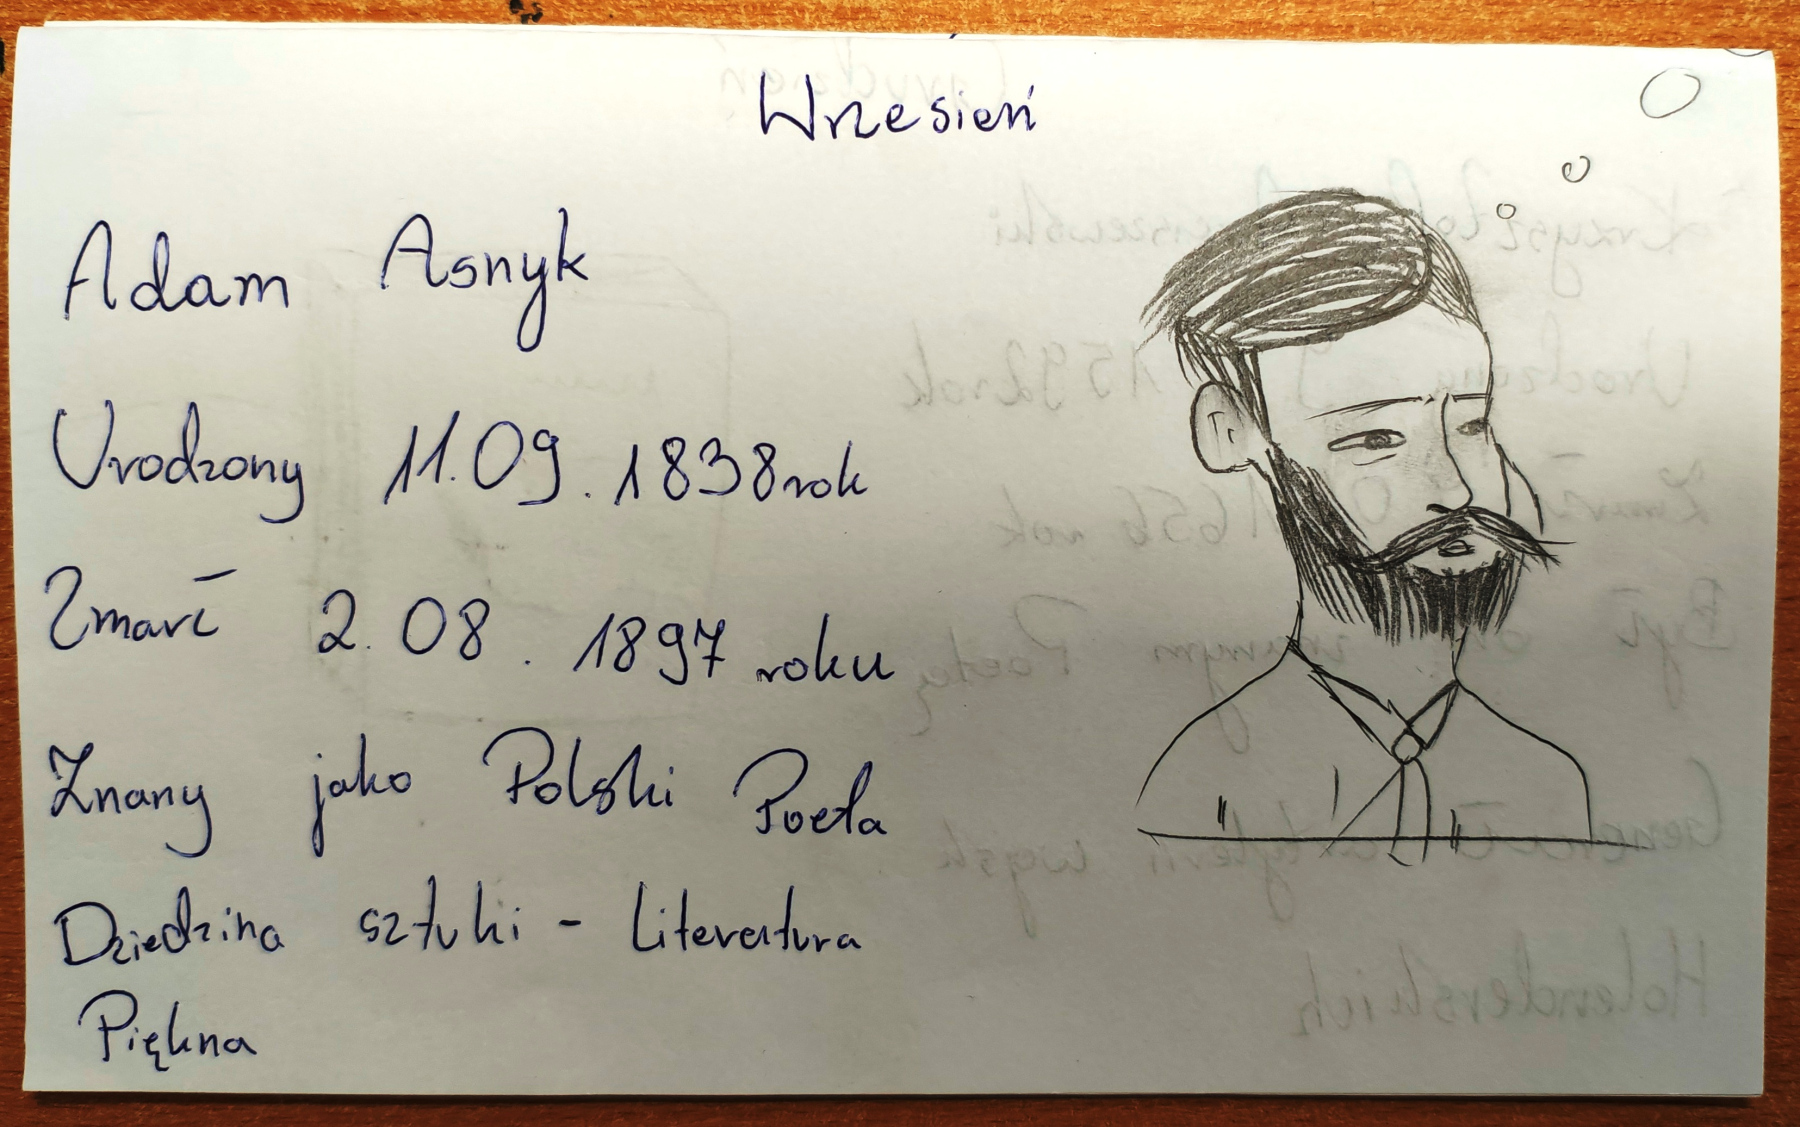 Wrzesień
Adam Asnyk
Urodzony 11.09.1838 rok
Zmarł 2.08.1897 roku
Znany jako Polski Poeta
Dziedzina sztuki - Literatura
Piękna